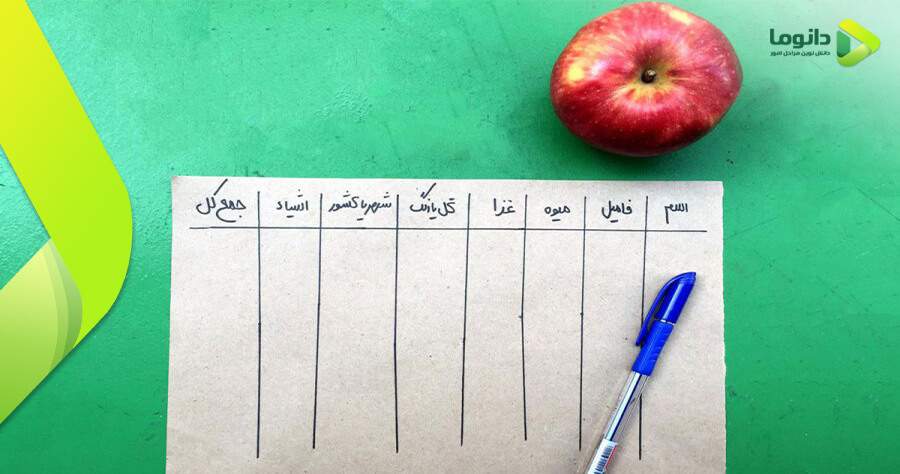 دانوما
دانش نوین مراحل امور
اسم فامیل میوه غذا گل یا رنگ شهر یا کشور اشیاء جمع کل